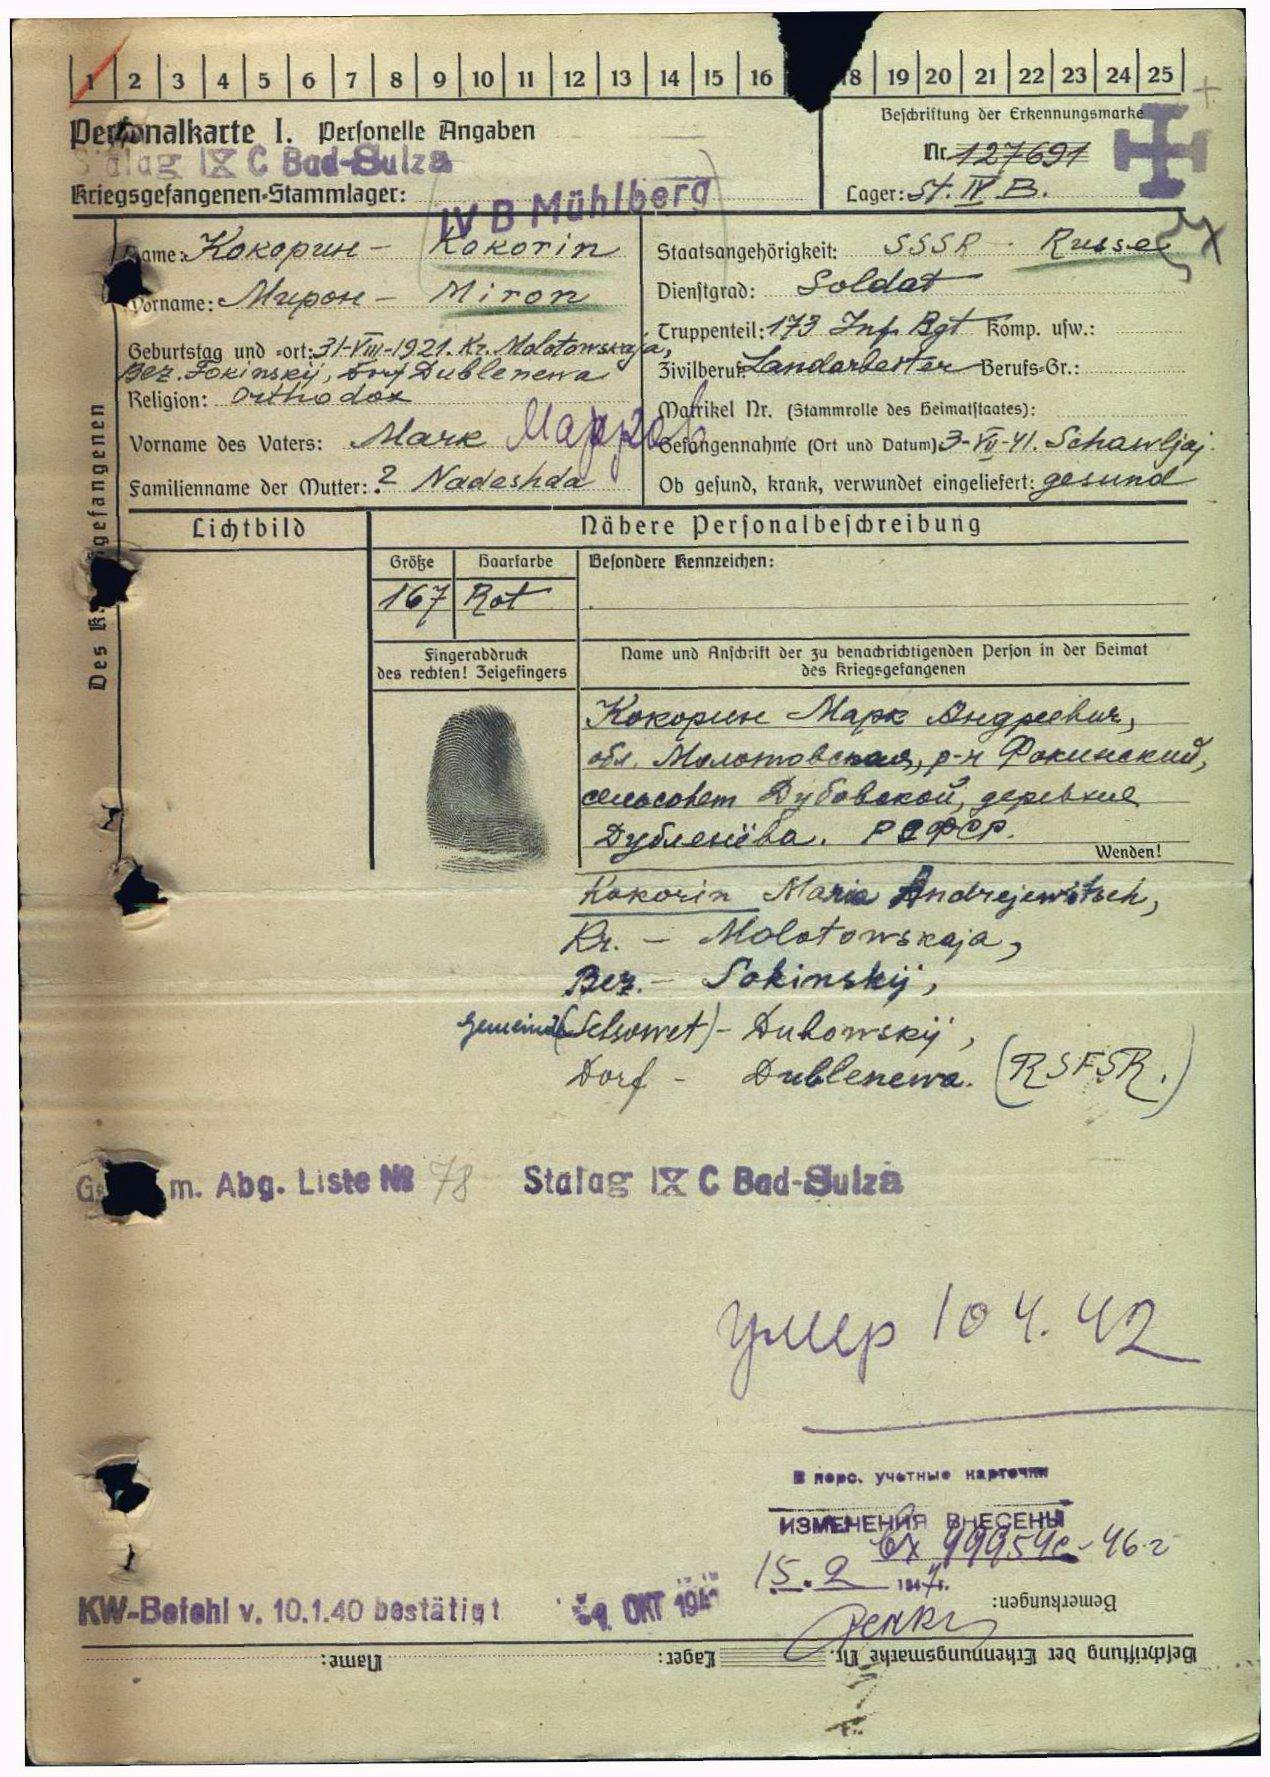 1 2 3 4 5 6 7 8 9 10 11 12 13 14 15 16 18 19 20 21 22 23 24 25
Personalkarte I. Personelle Angaben
Stalag IX C Bad-Sulza
Kriegsgefangenen-Stammlager:
IV B Mühlberg
Beschriftung der Erkennungsmarke
Nr. 127691
Lager: St. IV B.
Des Kr gefangenen
Name: Кокорин - Kokorin
Vorname: Мирон - Miron
Geburtstag und -ort: 31-VIII-1921. Kr. Molotowskaja,
Bez. Fokinskij, Dorf Dublenewa
Religion: Orthodox
Vorname des Vaters: Mark
Familienname der Mutter: ? Nadeshda
Staatsangehörigkeit: SSSR - Russe
Dienstgrad: Soldat
Truppenteil: 173 Inf. Bgt Komp. usw.:
Zivilberuf: Landarbeiter Berufs-Gr.:
Matrikel Nr. (Stammrolle des Heimatstaates):
Gefangennahme (Ort und Datum) 3-VII-41. Schawljaj.
Ob gesund, krank, verwundet eingeliefert: gesund
Lichtbild
Nähere Personalbeschreibung
Größe Haarfarbe Besondere Kennzeichen:
167 Rot
Fingerabdruck
des rechten! Zeigefingers
Name und Anschrift der zu benachrichtigenden Person in der Heimat
des Kriegsgefangenen
Кокорин Марк Андреевич,
обл. Молотовская, р-н Фокинский,
сельсовет Дубовской, деревня
Дубленёва. РСФСР.
Wenden!
Kokorin Maria Andrejewitsch,
Kr. - Molotowskaja,
Bez. - Fokinskij,
Gemeinde (Selsowet) - Dubowskij,
Dorf - Dublenewa. (RSFSR.)
m. Abg. Liste № 78 Stalag IX C Bad-Sulza
умер 10 4. 42
В перс. учетные карточки
ИЗМЕНЕНИЯ ВНЕСЕНЫ
15. 2 1947г.
KW-Befehl v. 10.1.40 bestätigt
OKT 1941
Bemerkungen:
Beschriftung der Erkennungsmarke Nr.
Lager:
Name: